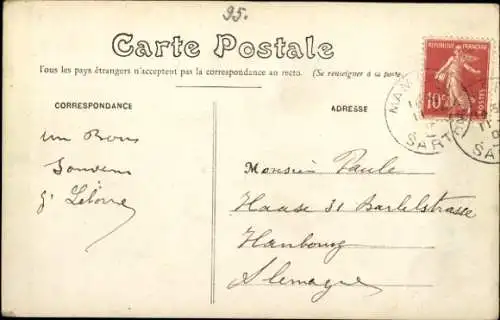 95.
Carte Postale
Tous les pays étrangers n'acceptent pas la correspondance au recto. (Se renseigner à sa poste
CORRESPONDANCE
ADRESSE
RÉPUBLIQUE FRANÇAISE
10c
POSTES
MAM
SARTH
SA
un Bons
Souvenir
Monsieur Paule
Haase 31 Bartelstrasse
Hambourg
Alemagne